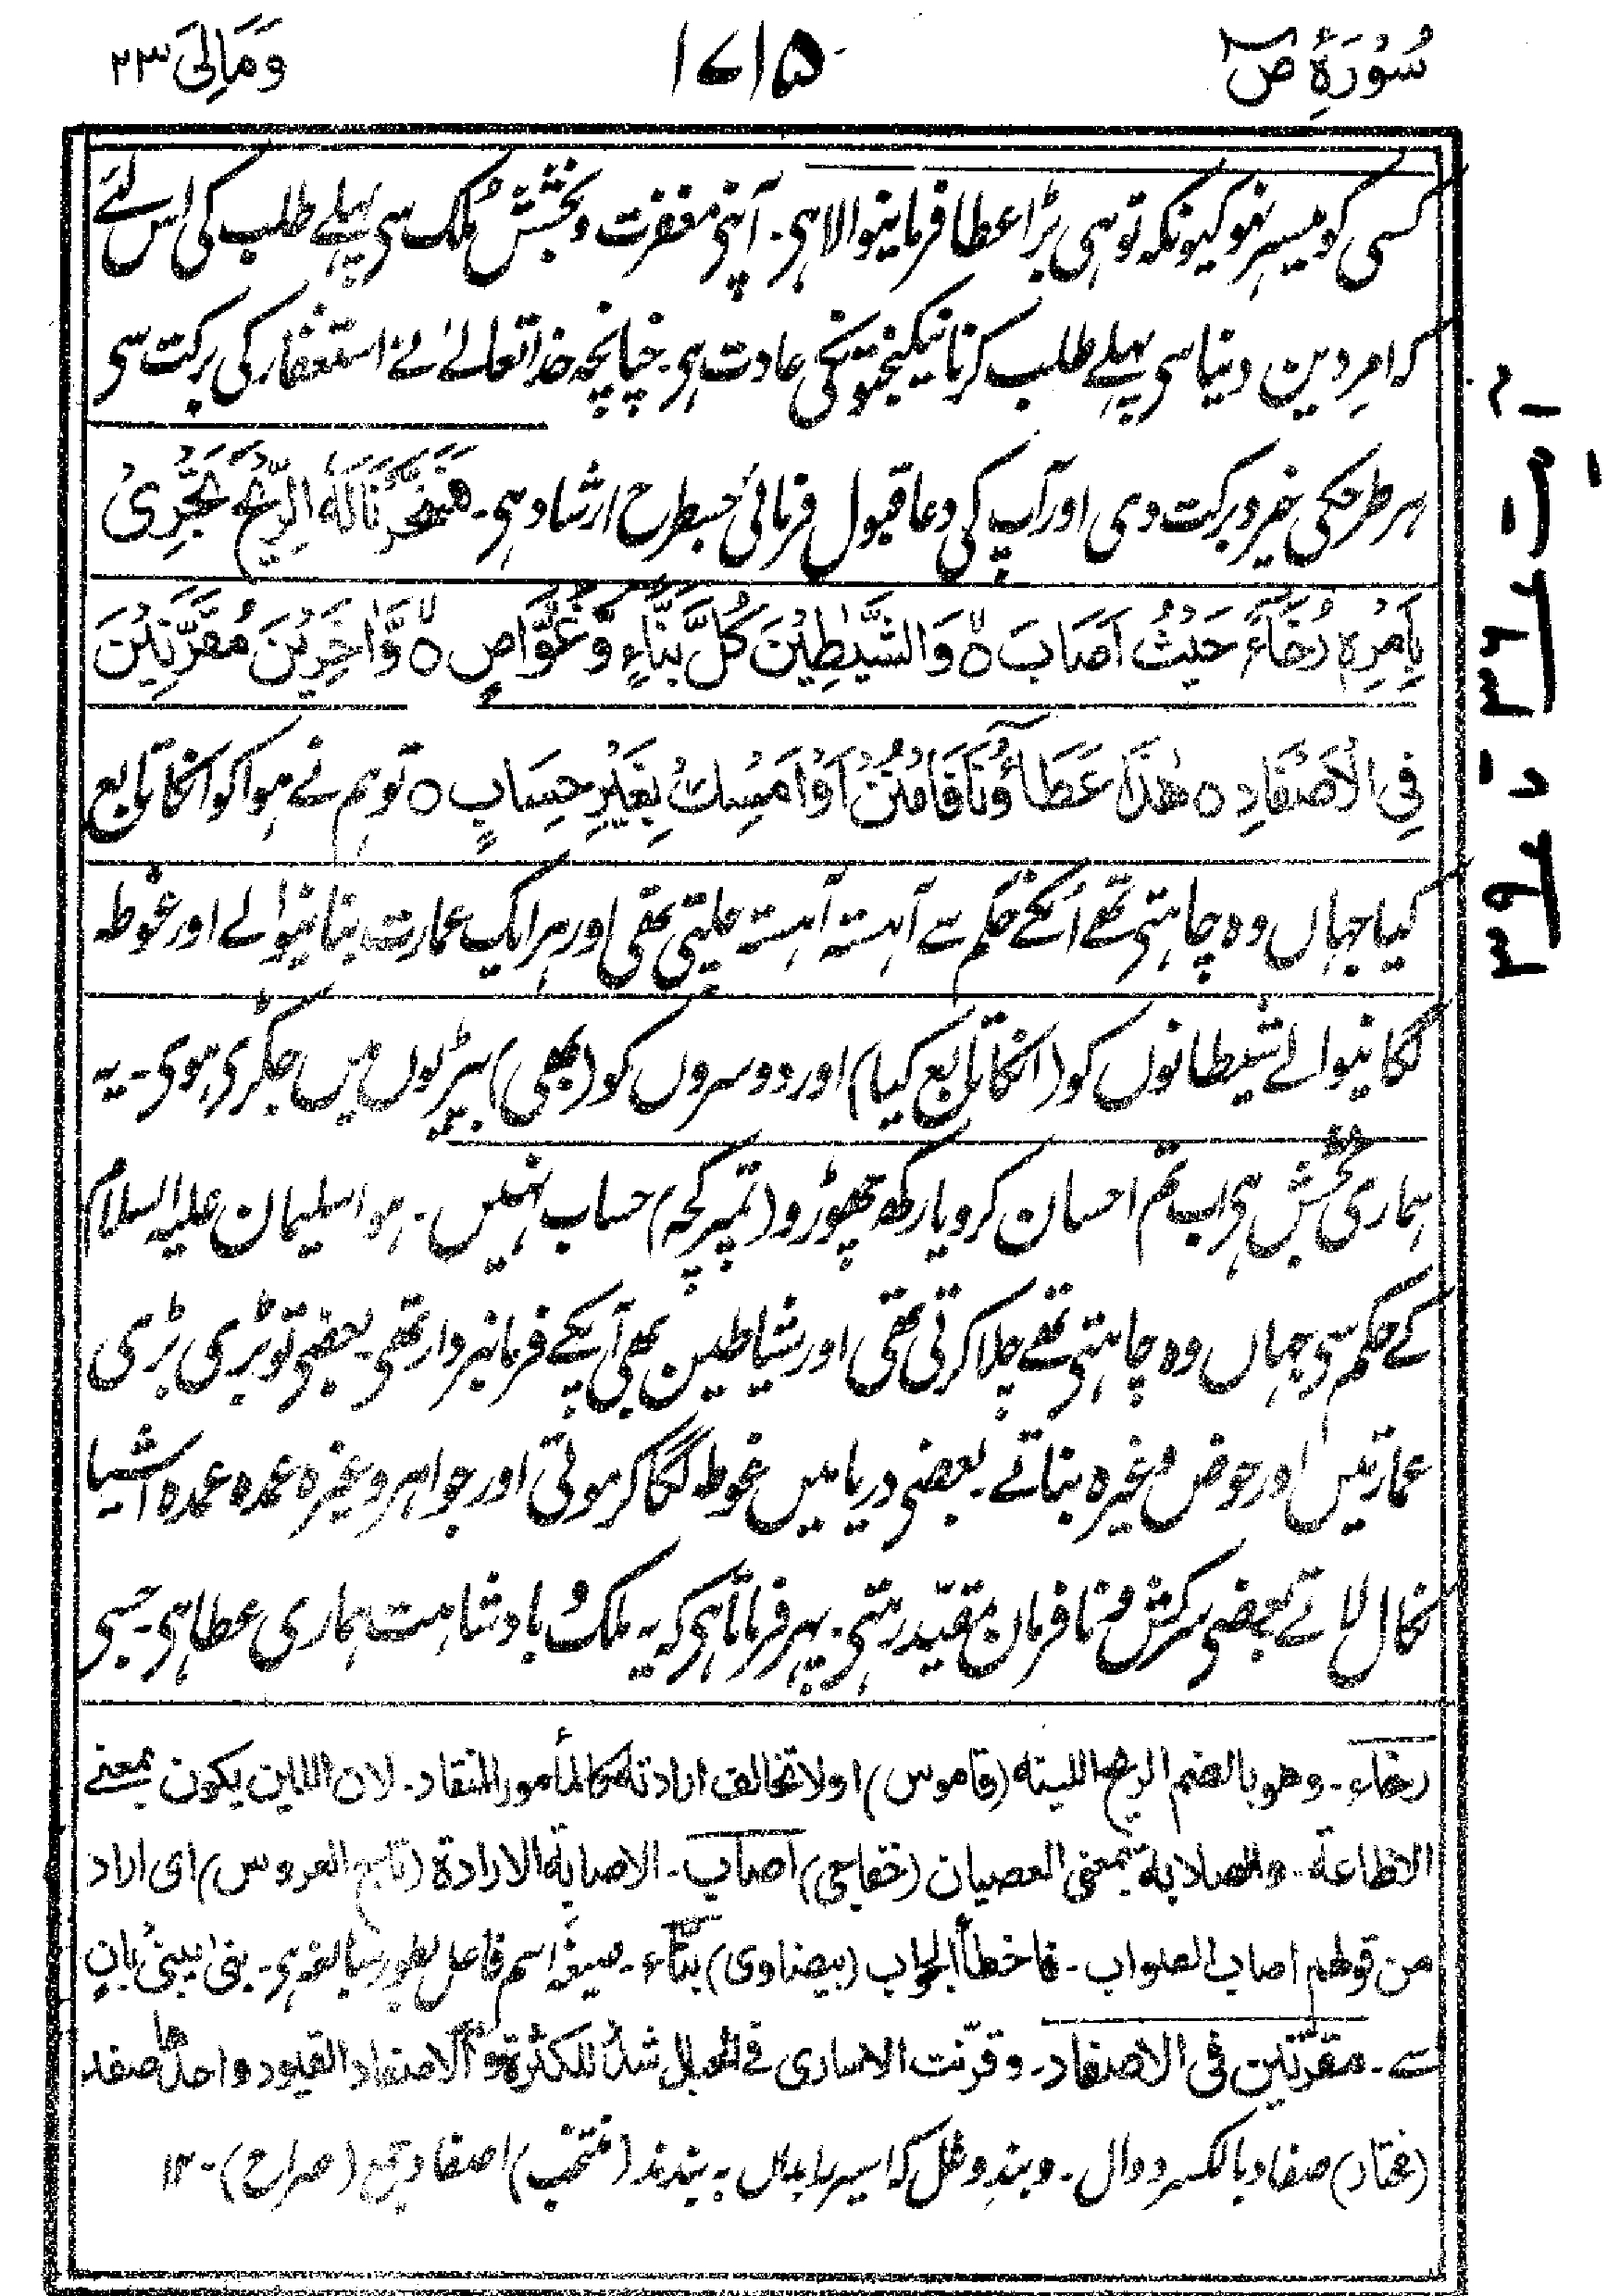 سُوْرَۂ ص ۳۸
۱۷۱۵
وَمَالِیَ ۲۳
کسی کو میسر نہو کیونکہ تو ہی بڑا عطا فرمانیوالا ہی۔ اپنی مغفرت و بخشش مُلک سی پہلے طلب کی اس لئے
کہ امرِ دین دنیا سی پہلے طلب کرنا نیکبختونکی عادت ہی۔ چنانچہ خدا تعالےٰ نے استغفار کی برکت سی
ہر طرحکی خیر و برکت دی اور آپ کی دعا قبول فرمائی جسطرح ارشاد ہی۔ فَسَخَّرْنَا لَهُ الرِّيْحَ تَجْرِيْ
بِاَمْرِهٖ رُخَآءً حَيْثُ اَصَابَ ۝ وَالشَّيٰطِيْنَ كُلَّ بَنَّآءٍ وَّغَوَّاصٍ ۝ وَّاٰخَرِيْنَ مُقَرَّنِيْنَ
فِي الْاَصْفَادِ ۝ هٰذَا عَطَآؤُنَا فَامْنُنْ اَوْ اَمْسِكْ بِغَيْرِ حِسَابٍ ۝ تو ہم نے ہوا کو انکا تابع
کیا جہاں وہ چاہتی تھے اُنکے حکم سے آہستہ آہستہ چلتی تھی اور ہر ایک عمارت بنانیوالے اور غوطہ
لگانیوالے شیطانوں کو (انکا تابع کیا) اور دوسروں کو (بھی) بیڑیوں میں جکڑی ہوی۔ یہ
ہماری بخشش ہی اب تم احسان کرو یا رکھ چھوڑو (تمپر کچھ) حساب نہیں۔ ہوا سلیمان علیہ السلام
کے حکم سی جہاں وہ چاہتی تھے چلا کرتی تھی اور شیاطین بھی آپکے فرمانبردار تھی۔ بعضی تو بڑی بڑی
عمارتیں اور حوض وغیرہ بناتے۔ بعضی دریا میں غوطہ لگا کر موتی اور جواہر وغیرہ عمدہ عمدہ اشیا
نکال لاتے بعضی سرکش و نافرمان مقیّد رہتی۔ پھر فرماتا ہی کہ یہ ملک و بادشاہت ہماری عطا ہی۔ جسی
رخاء۔ وهو بالضم الريح اللينة (قاموس) او لا تخالف ارادته كالمأمور المنقاد۔ لان اللين يكون بمعنے
الاطاعة۔ والصلابة بمعنى العصيان (خفاجى) اصاب۔ الاصابة الارادة (تاج العروس) اى اراد
من قولهم اصاب الصواب۔ فاخطأ الجواب (بيضاوى) بنّاء۔ صیغہ اسم فاعل بطور مبالغہ ہی۔ بنی یبنی بانٍ
سے۔ مقرّنين فى الاصفاد۔ وقرّنت الاسارى فى الحبال شدد للكثرة و الاصفاد القيود واحدها صفد
(مختار) صفاد بالکسر و دال۔ و بند و غل کہ اسیر را بداں بہ بندند (منتخب) اصفاد جمع (صراح)۔ ۱۲
آیت
۳۶
تا
۳۹